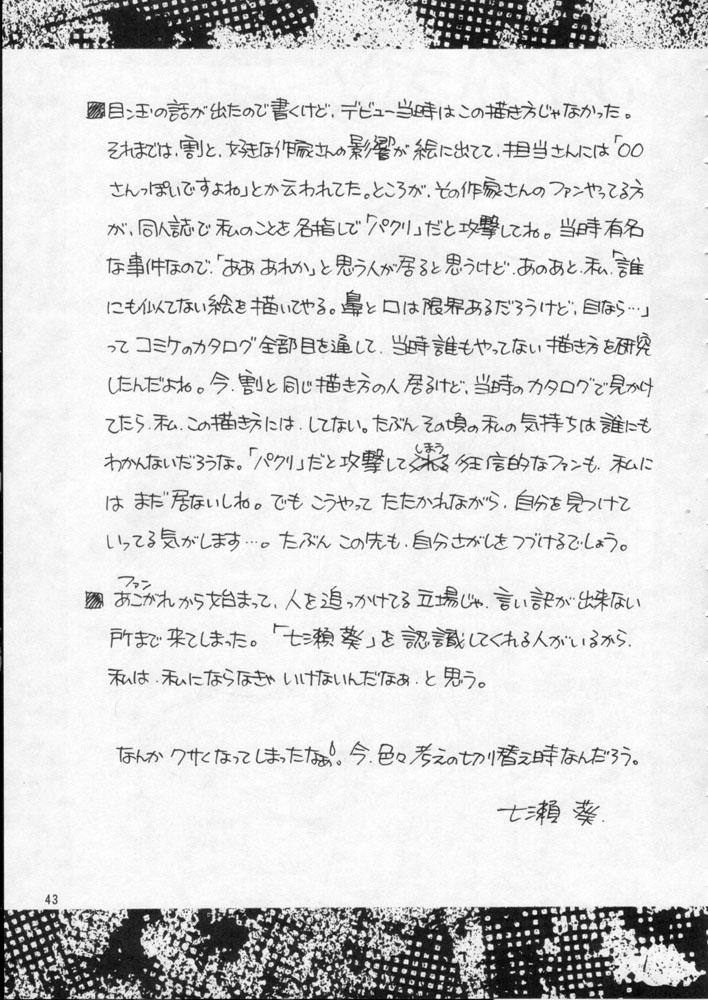 目ン玉の話が出たので書くけど、デビュー当時はこの描き方じゃなかった。
それまでは、割と、好きな作家さんの影響が絵に出てて、担当さんには「○○
さんっぽいですよね」とか云われてた。ところが、その作家さんのファンやってる方
が、同人誌で私のことを名指しで「パクリ」だと攻撃してね。当時有名
な事件なので、「ああ あれか」と思う人が居ると思うけど、あのあと、私、「誰
にも似てない絵を描いてやる。鼻と口は限界あるだろうけど、目なら…」
って コミケのカタログ全部目を通して、当時誰もやってない描き方を研究
したんだよね。今、割と同じ描き方の人居るけど、当時のカタログで見かけ
てたら、私、この描き方には、してない。たぶん その頃の私の気持ちは誰にも
わかんないだろうな。「パクリ」だと攻撃して
しまう
狂信的なファンも、私に
は まだ居ないしね。でも こうやって たたかれながら、自分を見つけて
いってる気がします…。たぶん この先も、自分さがしをつづけるでしょう。
ファン
あこがれから始まって、人を追っかけてる立場じゃ、言い訳が出来ない
所まで来てしまった。「七瀬葵」を認識してくれる人がいるから、
私は、私にならなきゃ いけないんだなぁ、と思う。
なんか クサくなってしまったなぁ。今、色々考えの切り替え時なんだろう。
七瀬 葵.
43